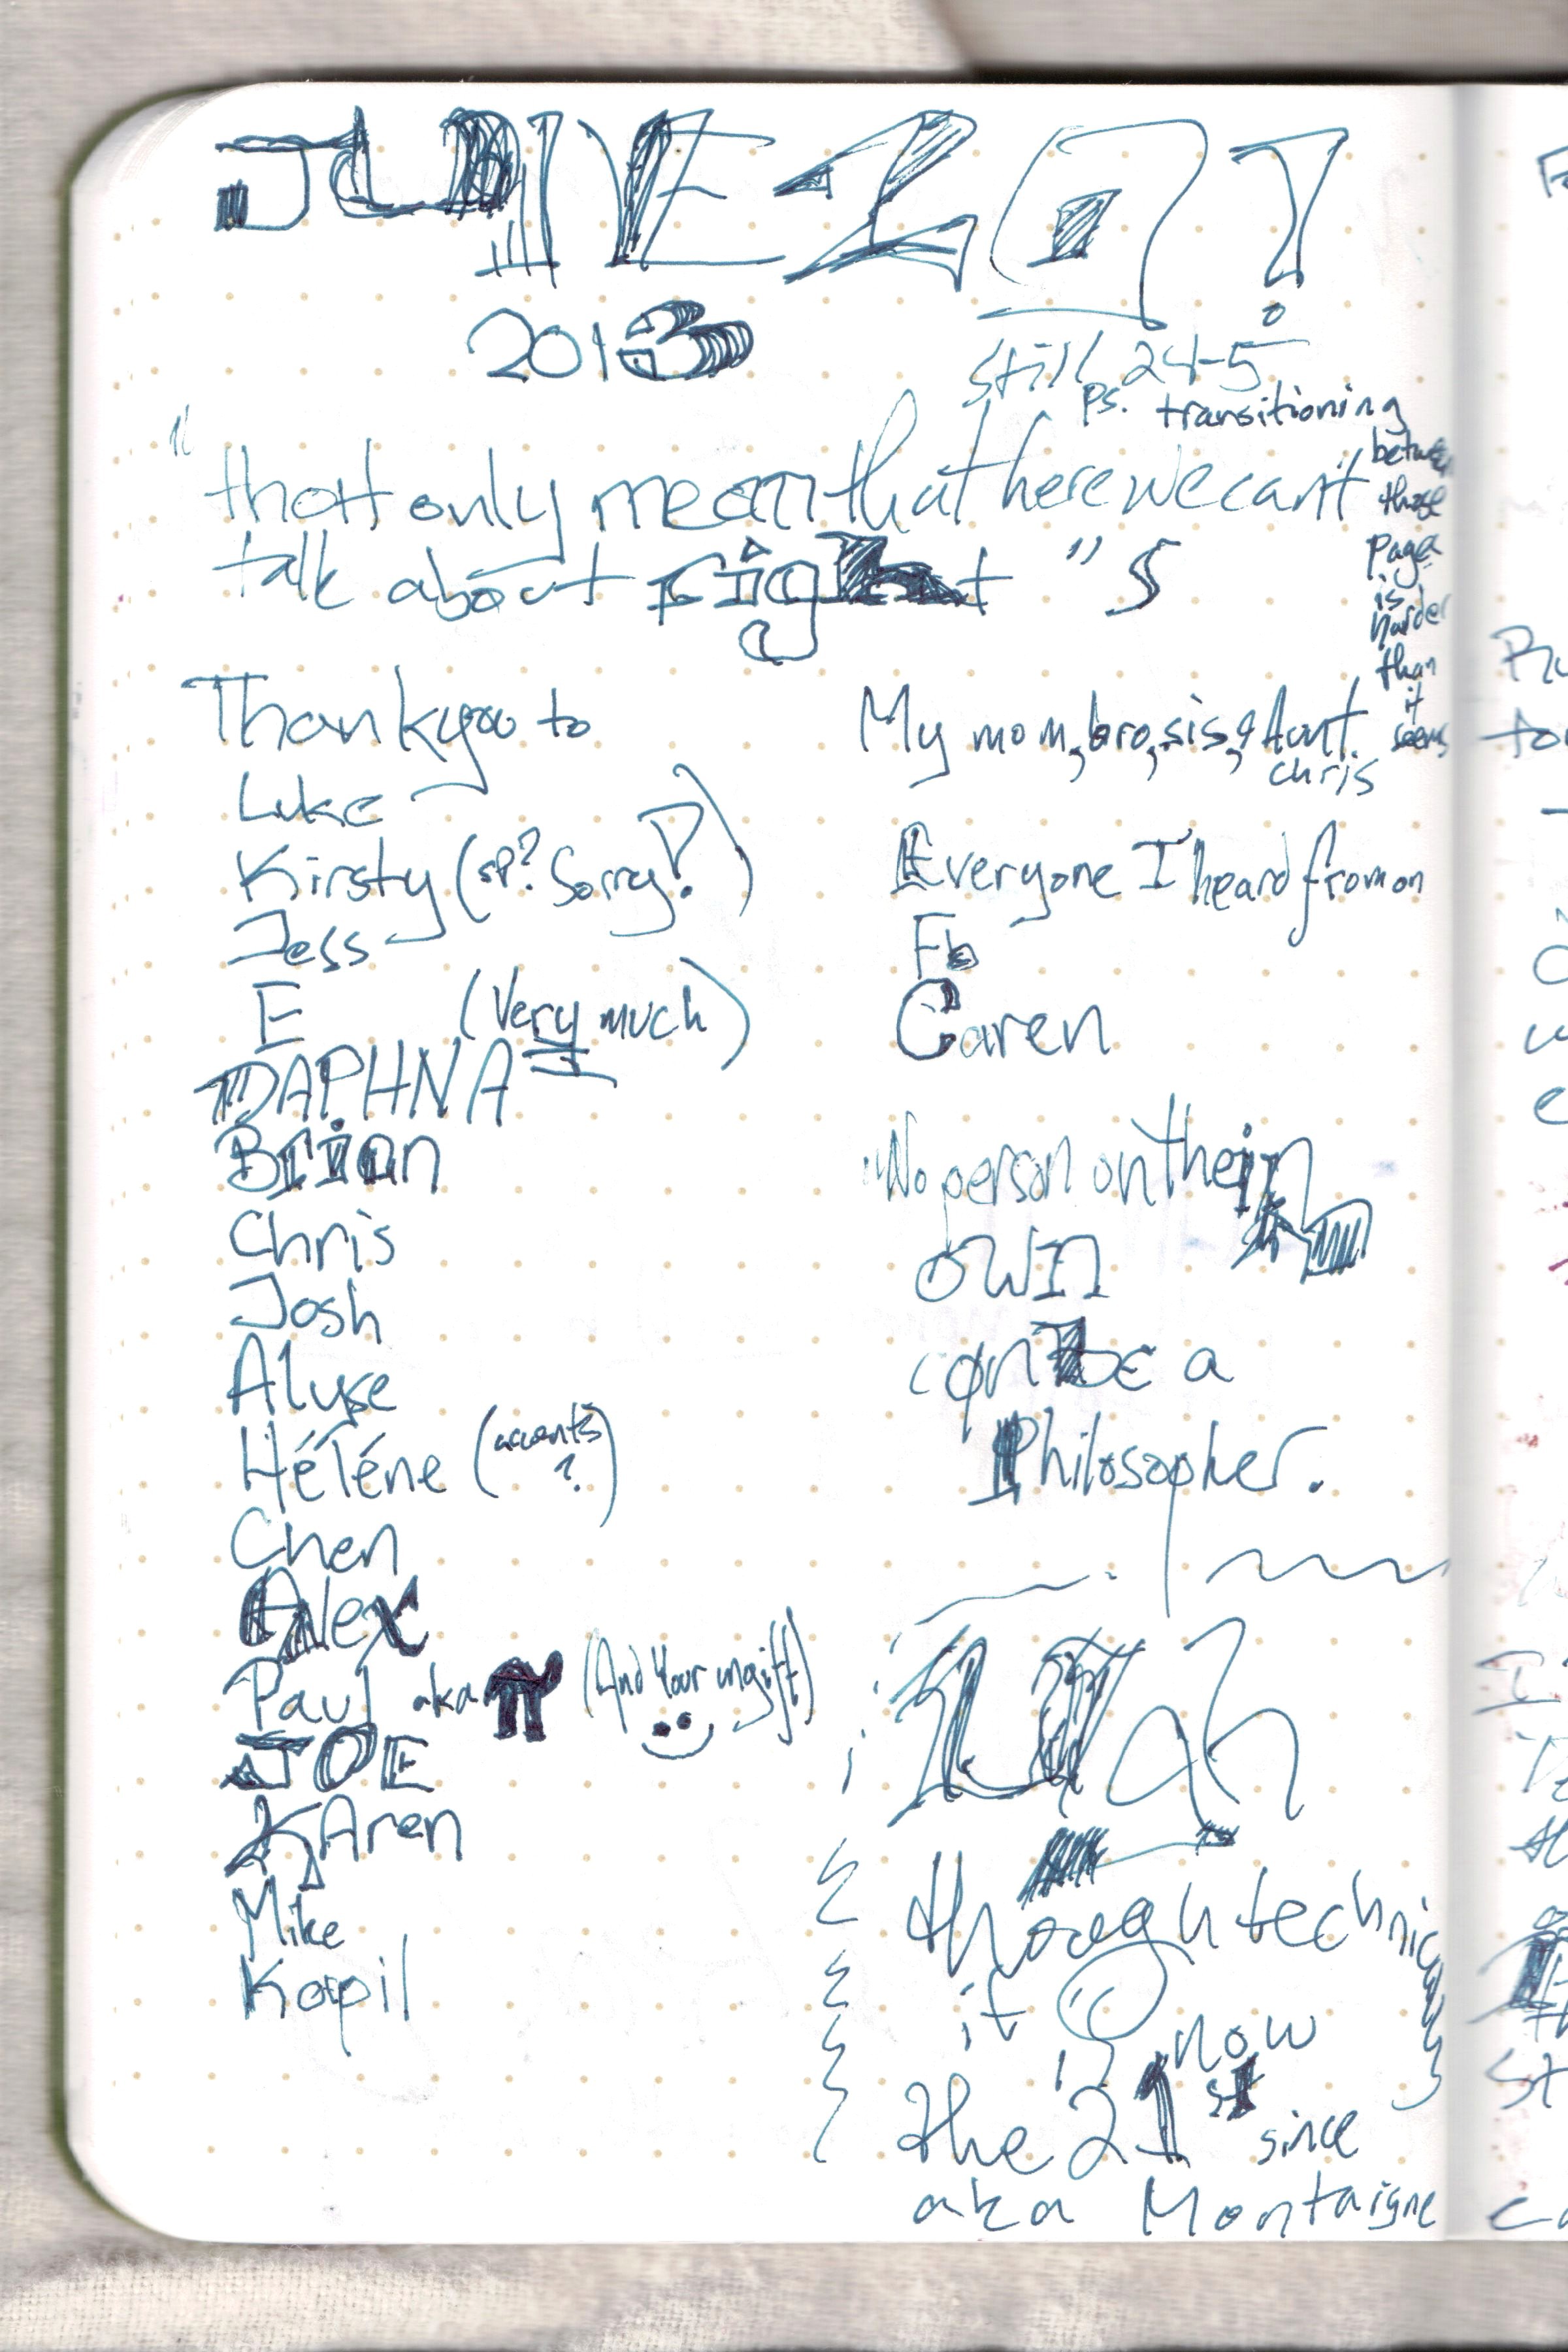 JUNE 20!
2013
still 24-5
ps. transitioning
between
those
page
is
harder
than
it
seems
"that only mean that here we can't
talk about right" §
Thank you to
Luke
Kirsty (sp? Sorry!)
Jess
E (Very much)
DAPHNA
Brian
Chris
Josh
Alyse
Héléne (accents?)
Chen
Alex
Paul aka (And Your ungift)
JOE
KAren
Mike
Kapil
My mom, bro, sis, & Aunt
chris
Everyone I heard from on
Fb
Caren
"No person on their
own
can be a
Philosopher.
though technically
it is now
the 21st since
aka Montaigne